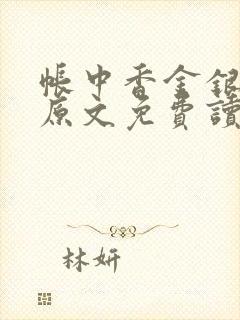 帳中香金銀
原文免費讀
林妍